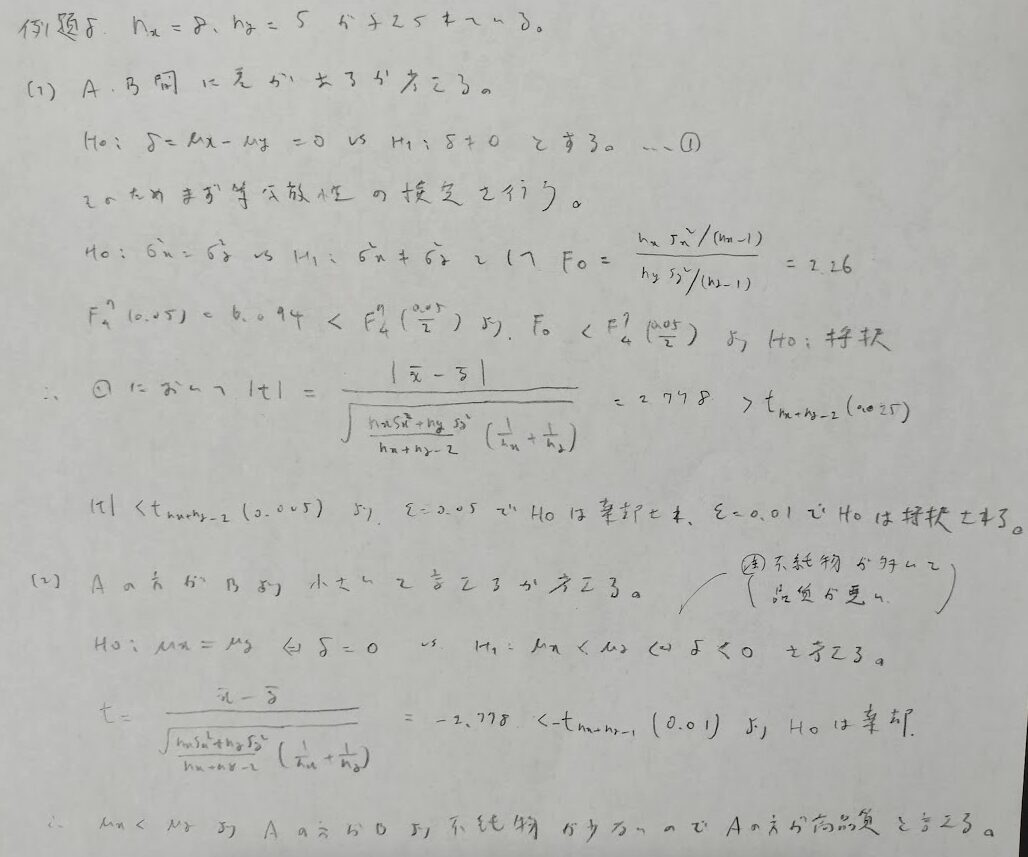 例題8. nx = 8、ny = 5 が与えられている。
(1) A、B間に差があるか考える。
H0: δ = μx - μy = 0 vs H1: δ ≠ 0 とする。…①
そのためまず等分散性の検定を行う。
H0: σ²x = σ²y vs H1: σ²x ≠ σ²y として F0 = (nx Sx²/(nx-1)) / (ny Sy²/(ny-1)) = 2.26
F⁷₄(0.05) = 6.094 < F⁷₄(0.05/2) より、F0 < F⁷₄(0.05/2) より H0: 採択
∴ ①において |t| = |x̄ - ȳ| / √((nxSx²+nySy²)/(nx+ny-2) (1/nx + 1/ny)) = 2.778 > t nx+ny-2 (0.025)
|t| < t nx+ny-2 (0.005) より ε=0.05 で H0 は棄却され、ε=0.01 で H0 は採択される。
(2) Aの方がBより小さいと言えるか考える。
(注) 不純物が多いと品質が悪い
H0: μx = μy ⇔ δ = 0 vs. H1: μx < μy ⇔ δ < 0 を考える。
t = (x̄ - ȳ) / √((nxSx²+nySy²)/(nx+ny-2) (1/nx + 1/ny)) = -2.778 < -t nx+ny-1 (0.01) より H0 は棄却.
∴ μx < μy より Aの方がBより不純物が少ないので Aの方が高品質と言える。